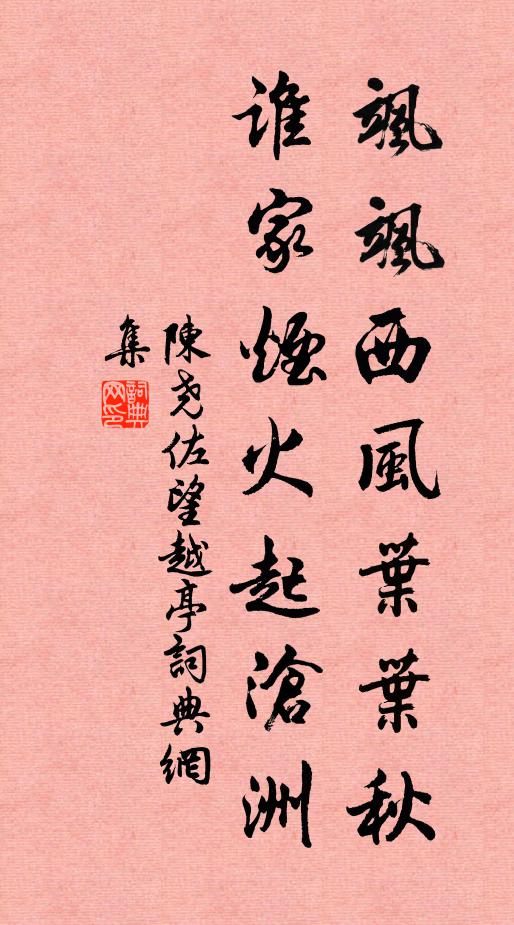 颯颯西風葉葉秋
誰家煙火起滄洲
陳尧佐望越亭詞典網
集
詞典網印